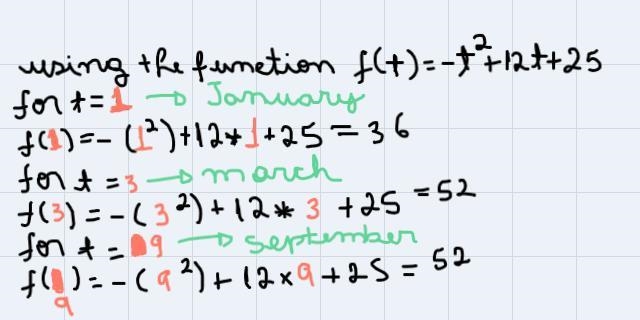 using the function f(t)=-t²+12t+25
for t=1 → January
f(1)=-(1²)+12*1+25=36
for t=3→march
f(3)=-(3²)+12*3+25=52
for t=9→september
f(9)=-(9²)+12×9+25=52